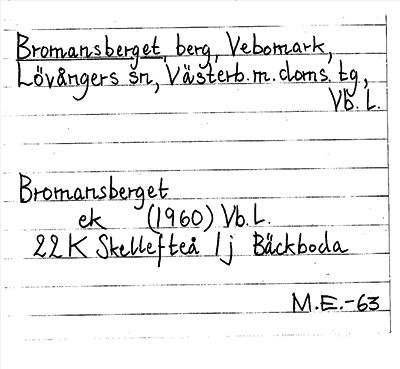 Bromansberget, berg, Vebomark,
Lövångers sn, Västerb. m. doms. tg,
Vb. L.
Bromansberget
ek (1960) Vb. L.
22 K Skellefteå 1j Bäckboda
M.E.-63